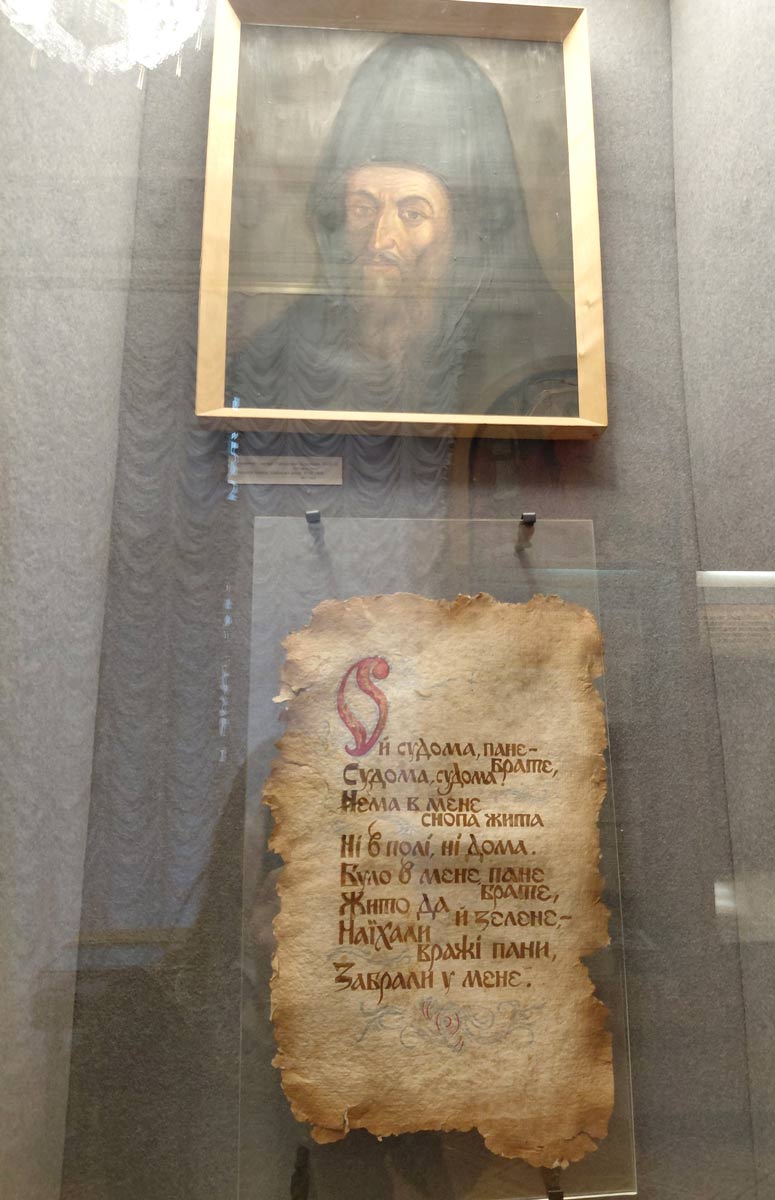 Ой судома, пане-
брате,
Судома, судома!
Нема в мене
снопа жита
Ні в полі, ні дома.
Було в мене, пане
брате,
Жито да й зелене,–
Наїхали
вражі пани,
Забрали у мене.